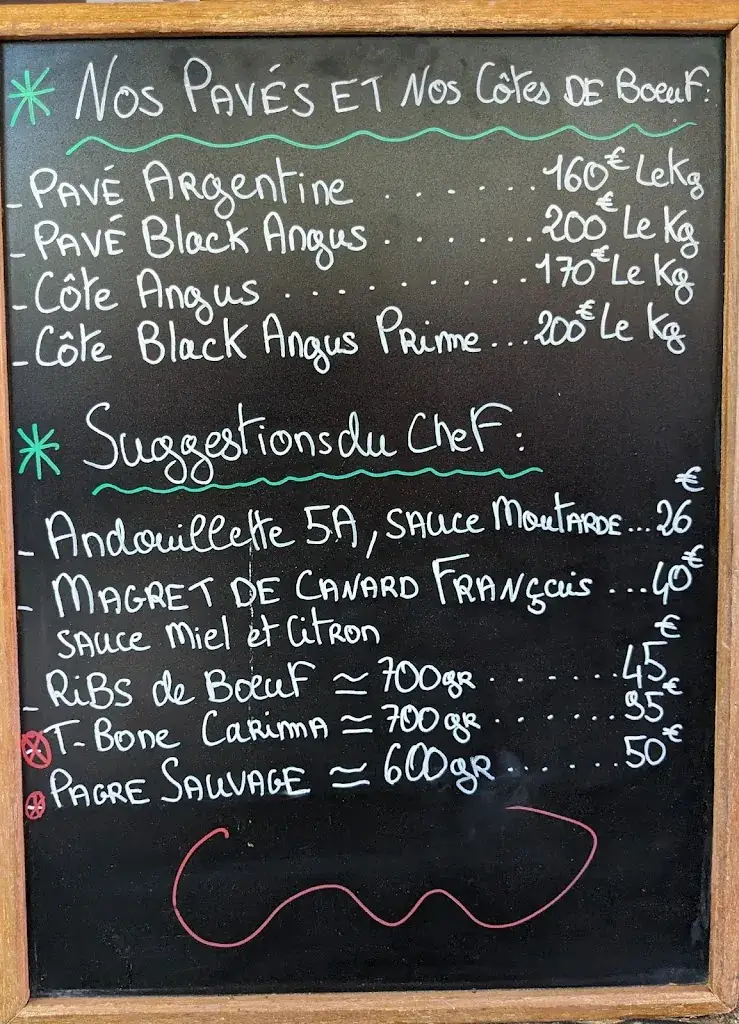 * Nos Pavés et Nos Côtes de Boeuf:
- Pavé Argentine ....... 160€ Le Kg
- Pavé Black Angus ....... 200€ Le Kg
- Côte Angus .......... 170€ Le Kg
- Côte Black Angus Prime ... 200€ Le Kg
* Suggestions du Chef:
- Andouillette 5A, sauce Moutarde ... 26€
- Magret de Canard Français .... 40€
sauce Miel et Citron
- Ribs de Boeuf ≈ 700gr ....... 45€
- T-Bone Carima ≈ 700gr ....... 95€
- Pagre Sauvage ≈ 600gr ....... 50€